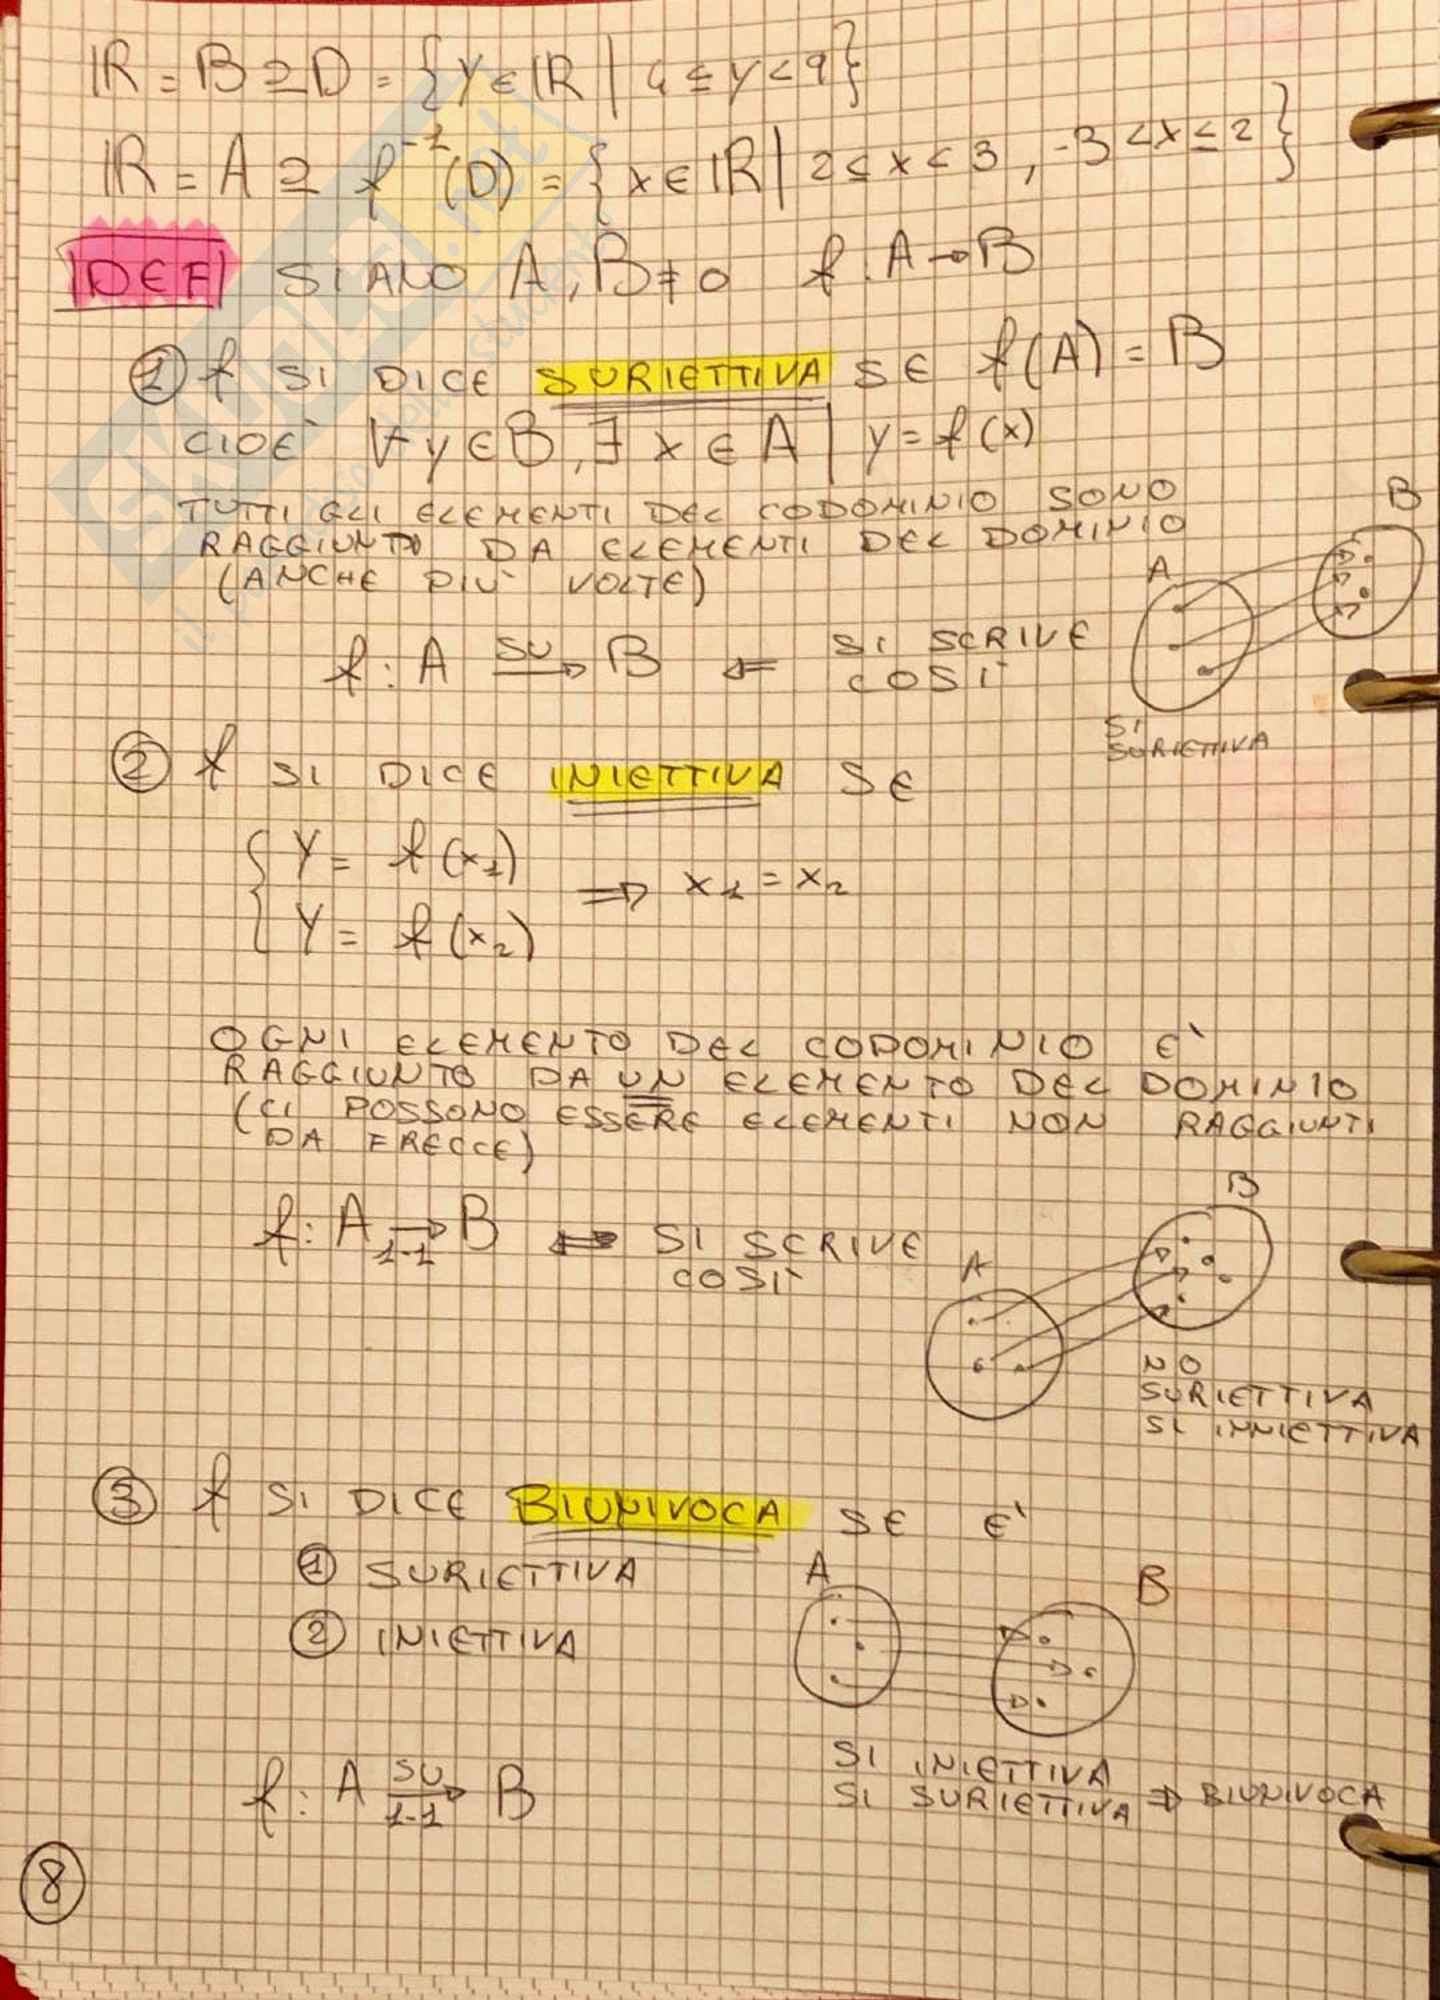 IR = B ⊇ D = {y ∈ IR | 4 ≤ y < 9}
IR = A ⊇ f⁻¹(D) = {x ∈ IR | 2 ≤ x < 3, -3 < x ≤ 2}
DEF SIANO A, B ≠ 0 f: A → B
① f SI DICE SURIETTIVA SE f(A) = B
CIOE' ∀ y ∈ B, ∃ x ∈ A | y = f(x)
TUTTI GLI ELEMENTI DEL CODOMINIO SONO
RAGGIUNTO DA ELEMENTI DEL DOMINIO
(ANCHE PIÙ VOLTE)
A
B
f: A SU→ B ⇐ SI SCRIVE
COSÌ
SI
SURIETTIVA
② f SI DICE INIETTIVA SE
{ Y = f(x₁)
Y = f(x₂)
⇒ x₁ = x₂
OGNI ELEMENTO DEL CODOMINIO E'
RAGGIUNTO DA UN ELEMENTO DEL DOMINIO
(CI POSSONO ESSERE ELEMENTI NON RAGGIUNTI
DA FRECCE)
f: A →1-1 B ⇐ SI SCRIVE
COSÌ
A
B
NO
SURIETTIVA
SI INNIETTIVA
③ f SI DICE BIUNIVOCA SE E'
① SURIETTIVA
② INIETTIVA
A
B
SI INIETTIVA
SI SURIETTIVA ⇒ BIUNIVOCA
f: A SU→1-1 B
8